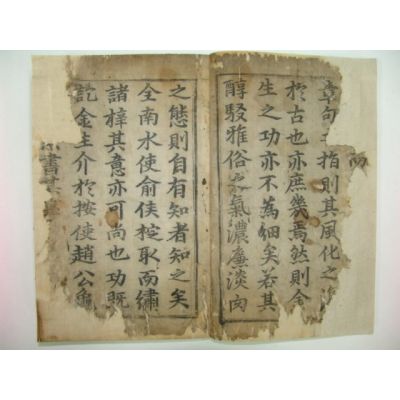 而
章句指則其風化之
於古也亦庶幾焉然則金
生之功亦不為細矣若其
醇駁雅俗氣濃淡向
之態則自有知者知之矣
全南水使俞侯椗取而繡
諸梓其意亦可尚也功既
訖金主介於按使趙公龜
書其